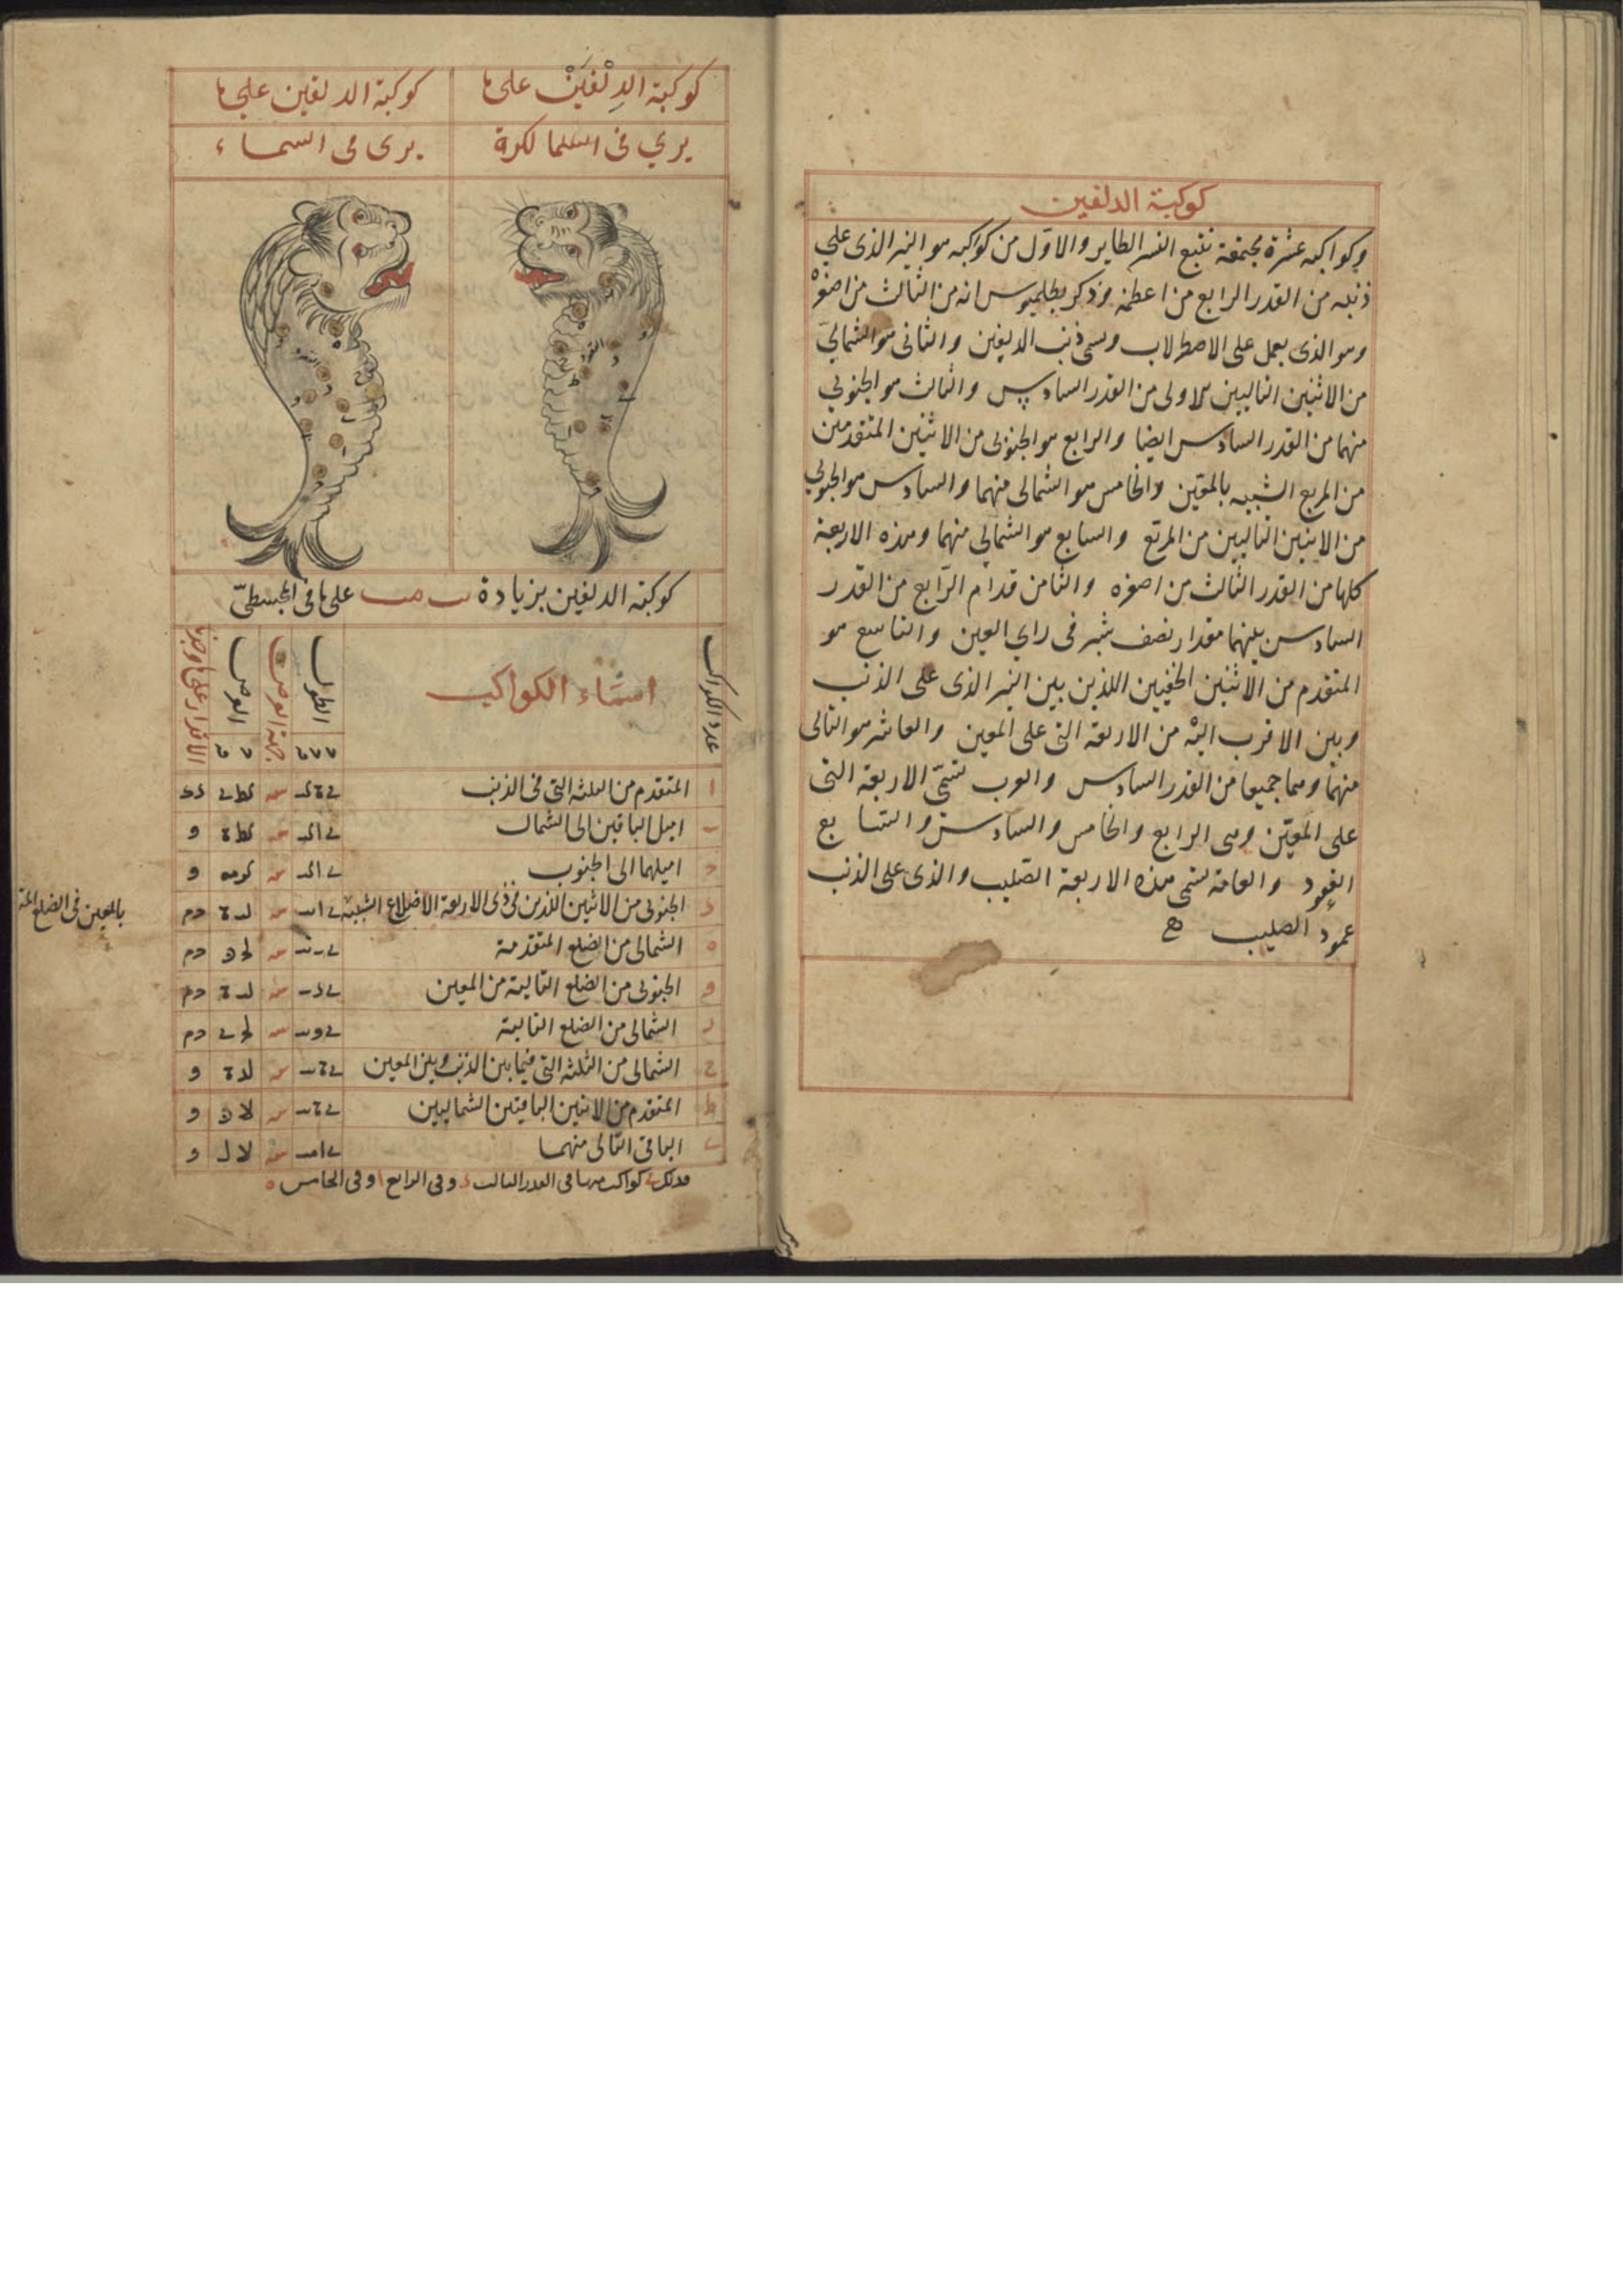 كوكبة الدلفين
وكواكبه عشرة مجتمعة تتبع النسر الطاير والاوّل من كواكبه هو النير الذى علي
ذنبه من القدر الرابع من اعظمه وذكر بطلميوس انه من الثالث من اصغره
وهو الذى يعمل على الاصطرلاب ويسمى ذنب الدلفين والثانى هو الشمالىّ
من الاثنين التاليين للاولى من القدر السادس والثالث هو الجنوبي
منهما من القدر السادس ايضا والرابع هو الجنوبى من الاثنين المتقدمين
من المربع الشبيه بالمعيّن والخامس هو الشمالى منهما والسادس هو الجنوبي
من الاثنين التاليين من المربّع والسابع هو الشمالي منهما وهذه الاربعة
كلها من القدر الثالث من اصغره والثامن قدام الرّابع من القدر
السادس بينهما مقدار نصف شبر فى راي العين والتاسع هو
المتقدم من الاثنين الخفيين اللذين بين النير الذى على الذنب
وبين الاقرب اليْه من الاربعة التى على المعين والعاشر هو التالى
منهما وهما جميعا من القدر السادس والعرب تسمّى الاربعة التى
على المعيّن وهى الرابع والخامس والسادس والسا بع
العقود والعامة تسمى هذه الاربعة الصّليب والذى على الذنب
عمود الصليب
كوكبة الدِلْفَيْن على ما
يري فى الكرة
كوكبة الدلفين علي ما
يرى فى السماء
كوكبة الدلفين بزيادة ىب مب على ما فى المجسطىّ
عدد الكواكب
اسمَاء الكواكب
الطول
جهة العرض
العرض
ا المتقدم من الثلثة التى فى الذنب
ب اميل الباقين الى الشمال
ج اميلهما الى الجنوب
د الجنوبى من الاثنين اللذين فى ذى الاربعة الاضلاع الشبيه
بالمعين فى الضلع
ه الشمالى من الضلع المتقدمة
و الجنوبى من الضلع التالية من المعين
ز الشمالى من الضلع التالية
ح الشمالى من الثلثة التى فيما بين الذنب وبين المعين
ط المتقدم من الاثنين الباقيين الشماليين
ى الباقى التّالى منهما
فذلك ى كواكب منها فى القدر الثالث د وفى الرابع ا وفى الخامس ه